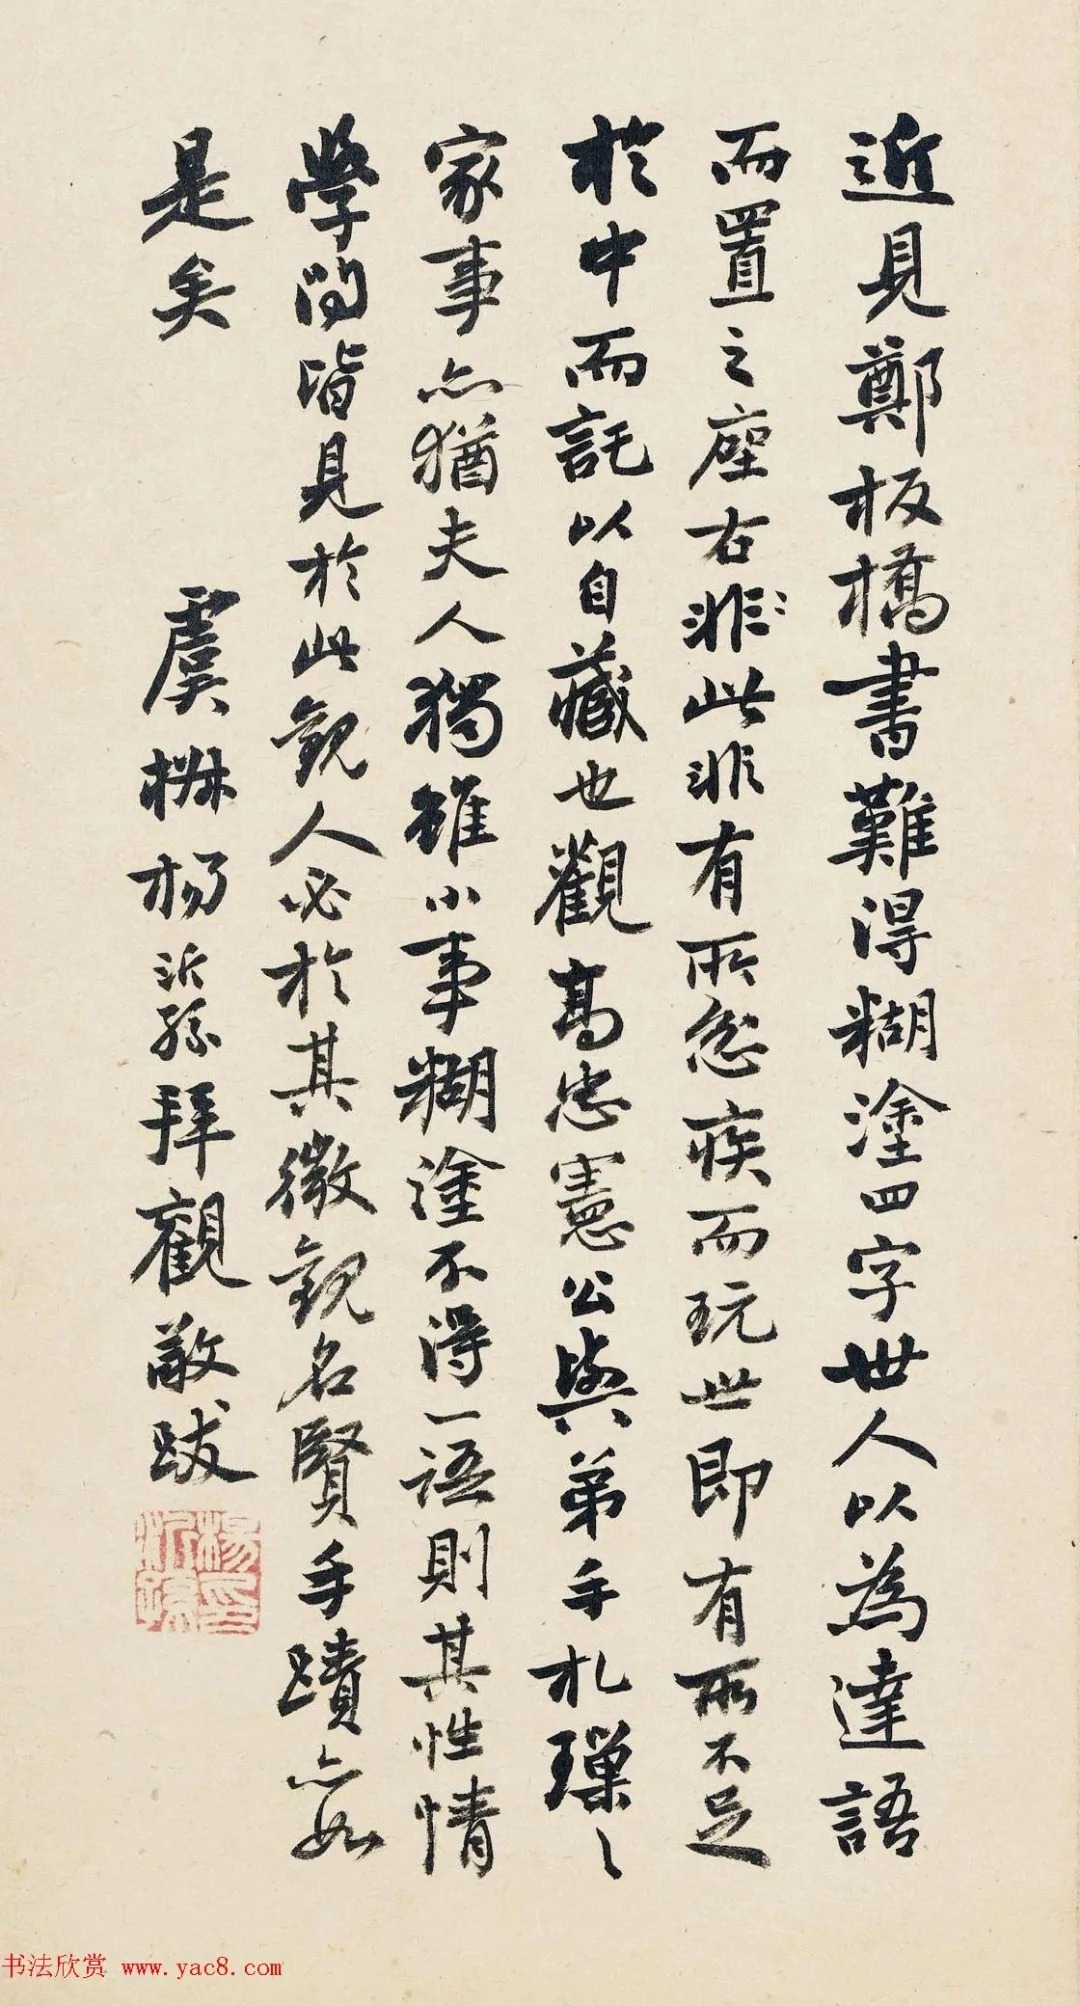 近見鄭板橋書難得糊塗四字世人以為達語
而置之座右非此非有所忿疾而玩世即有所不足
於中而託以自藏也觀高忠憲公與弟手札璅〻
家事亦猶夫人獨雖小事糊塗不得一語則其性情
學問皆見於此觀人必於其微觀名賢手蹟亦如
是矣
虞 杨沂孫拜觀敬跋
楊印沂孫
书法欣赏 www.yac8.com